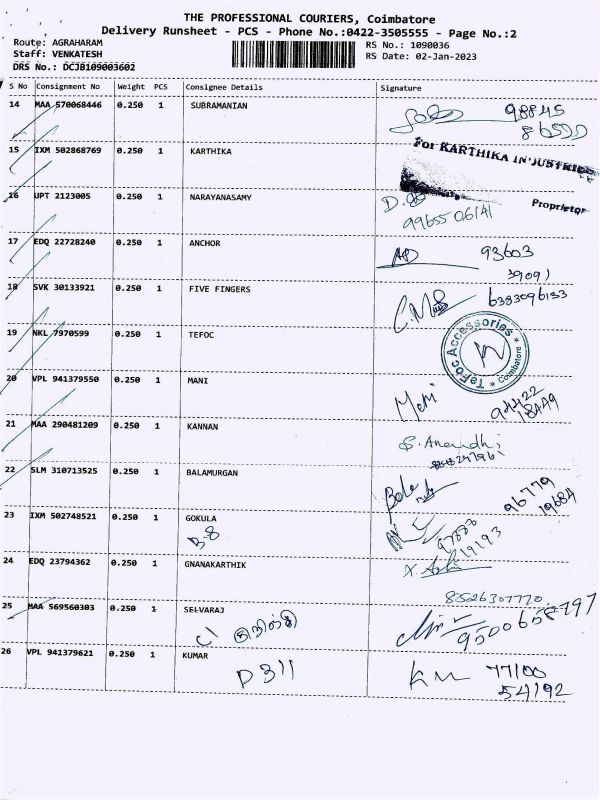 THE PROFESSIONAL COURIERS, Coimbatore
Delivery Runsheet - PCS - Phone No.:0422-3505555 - Page No.:2
Route: AGRAHARAM
RS No.: 1090036
Staff: VENKATESH
RS Date: 02-Jan-2023
DRS No.: DCJB109003602
S No Consignment No Weight PCS Consignee Details Signature
14 MAA 570068446 0.250 1 SUBRAMANIAN 98845
15 IXM 502868769 0.250 1 KARTHIKA For KARTHIKA INDUSTRIES
Proprietor
16 UPT 2123005 0.250 1 NARAYANASAMY
9965506141
17 EDQ 22728240 0.250 1 ANCHOR 93603
39091
18 SVK 30133921 0.250 1 FIVE FINGERS 6383096133
19 NKL 7970599 0.250 1 TEFOC TeFoc Accessories * Coimbatore *
20 VPL 941379550 0.250 1 MANI Mani
18449
21 MAA 290481209 0.250 1 KANNAN S. Anandhi
22 SLM 310713525 0.250 1 BALAMURGAN Bala 96779
19684
23 IXM 502748521 0.250 1 GOKULA
B-8
19193
24 EDQ 23794362 0.250 1 GNANAKARTHIK
8526307770
25 MAA 569560303 0.250 1 SELVARAJ
26 VPL 941379621 0.250 1 KUMAR 77100
D311
54192